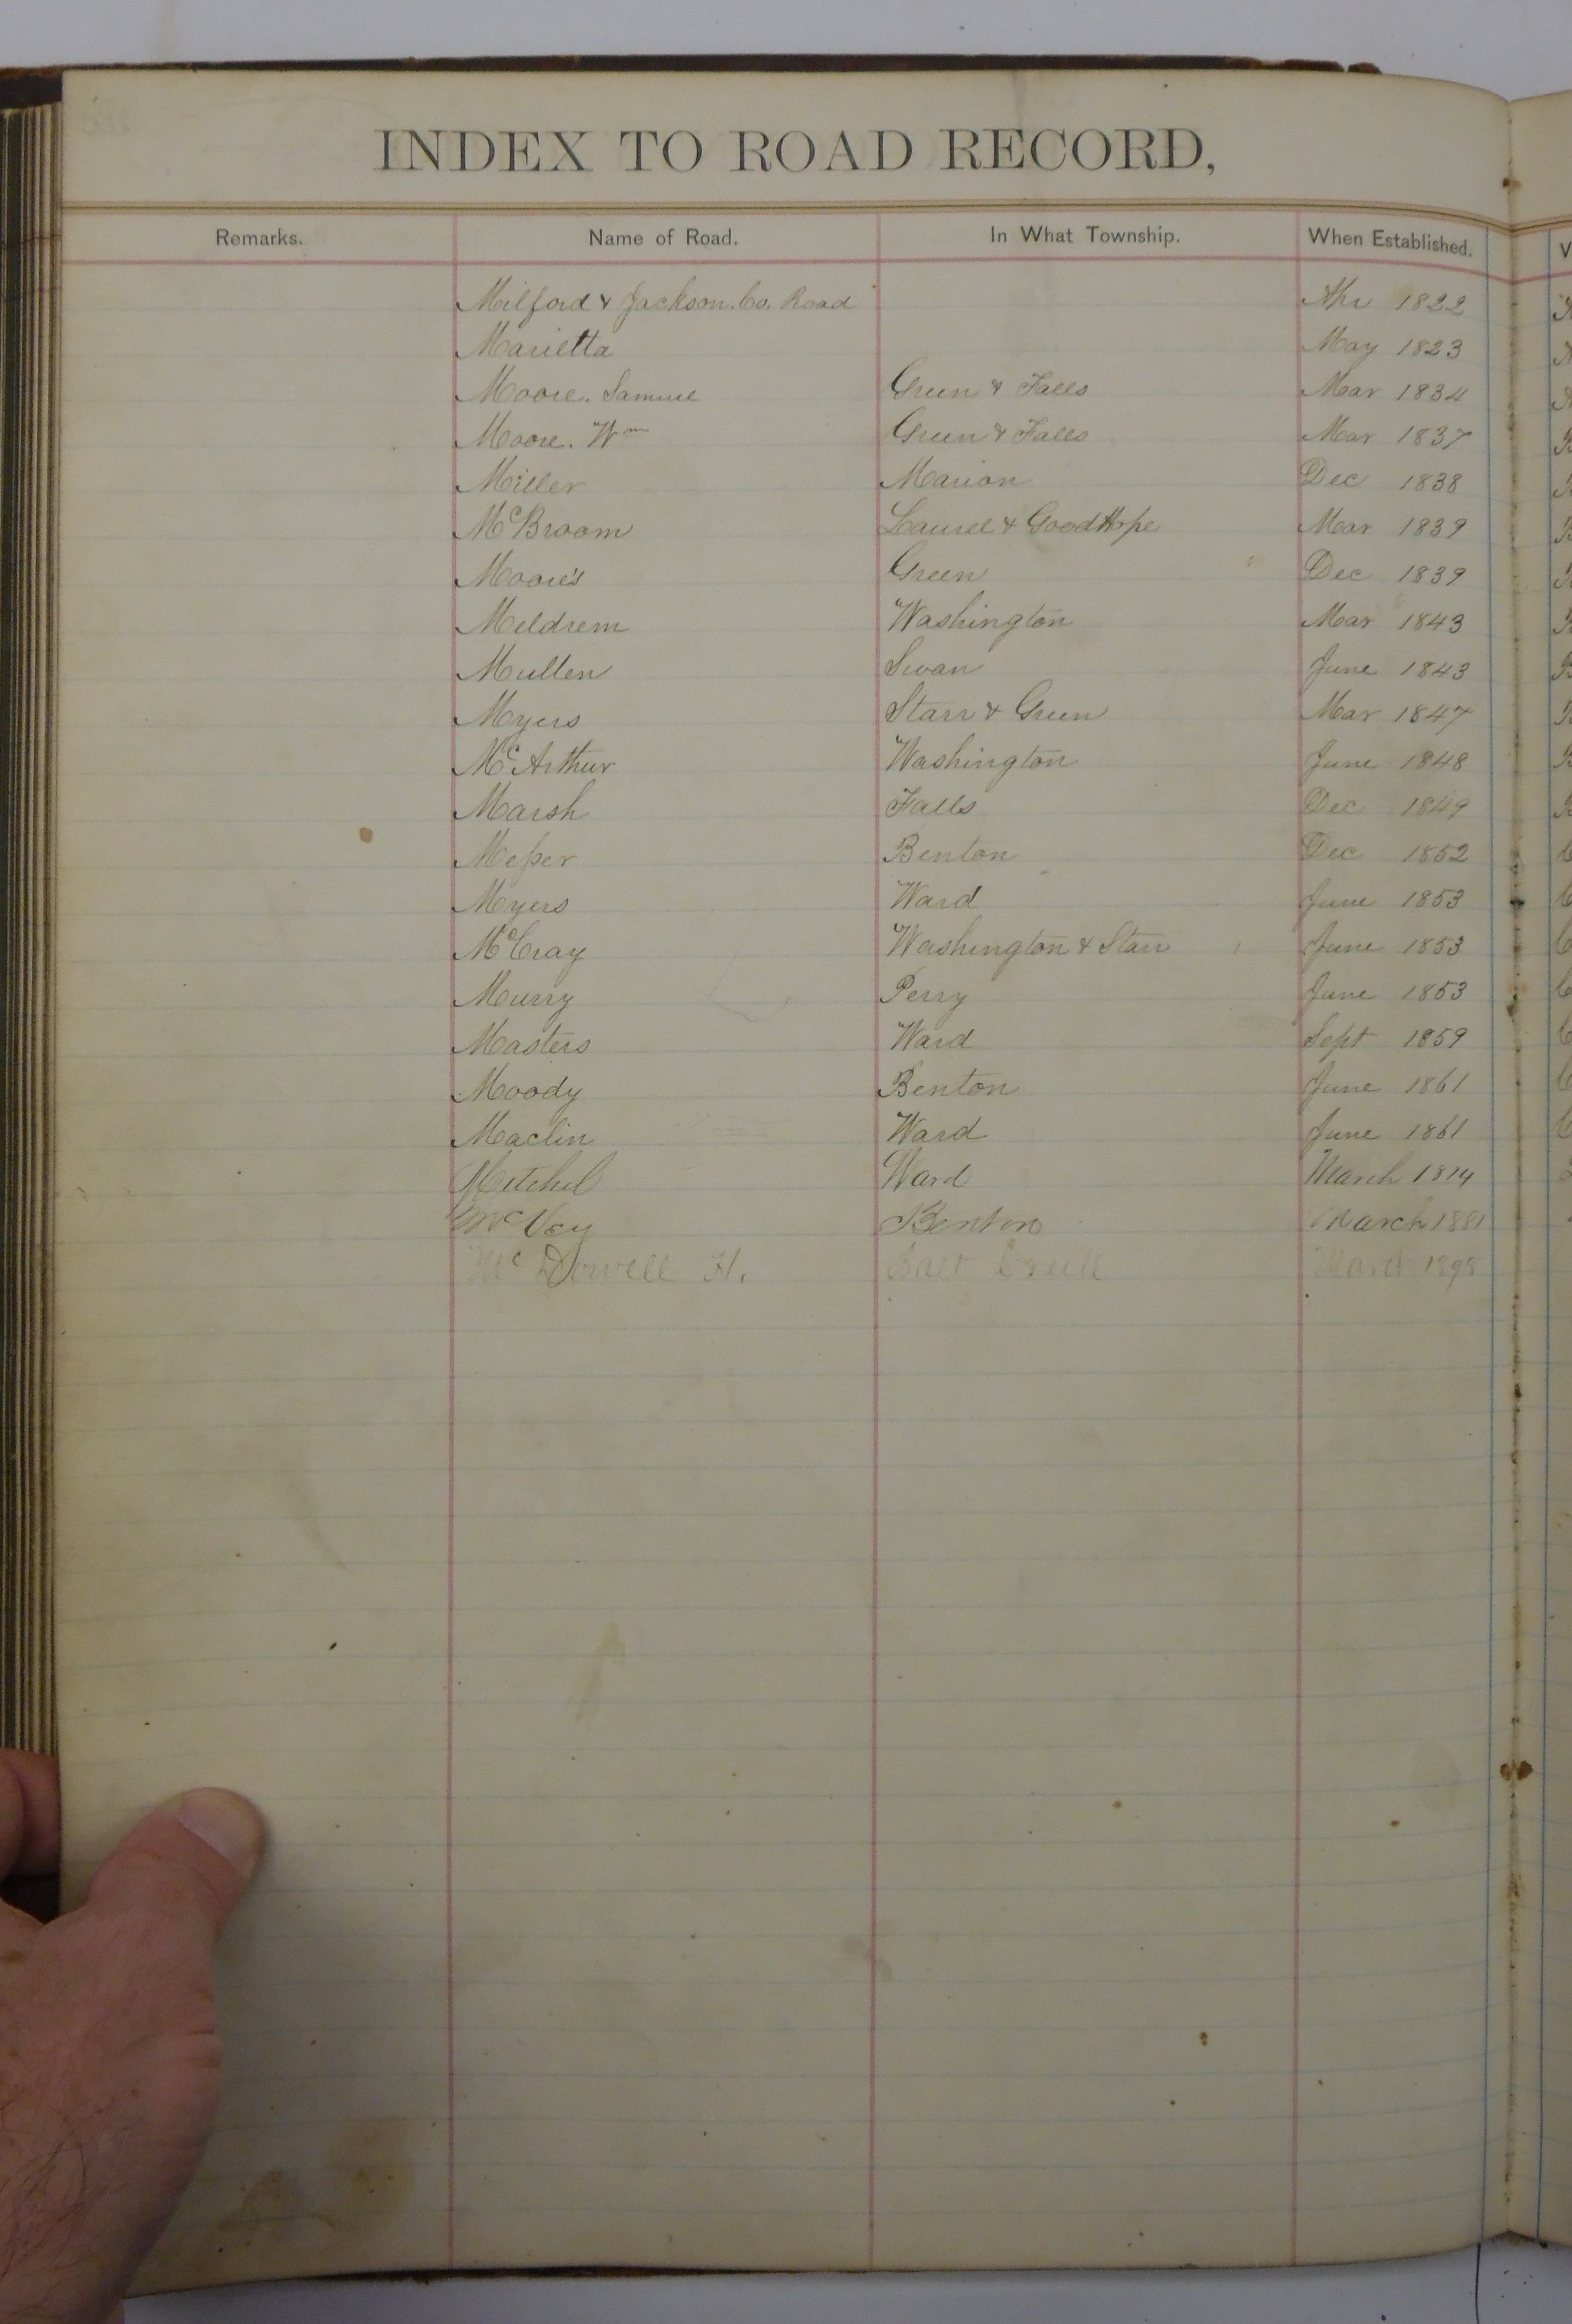 INDEX TO ROAD RECORD,
Remarks. Name of Road. In What Township. When Established.
Milford & Jackson. Co. Road Apr 1822
Marietta May 1823
Moore. Samuel Green & Falls Mar 1834
Moore. Wm Green & Falls Mar 1837
Miller Marion Dec 1838
McBroom Laurel & Good Hope Mar 1839
Moore's Green Dec 1839
Meldrem Washington Mar 1843
Mullen Swan June 1843
Myers Starr & Green Mar 1847
McArthur Washington June 1848
Marsh Falls Dec 1849
Messer Benton Dec 1852
Myers Ward June 1853
McCray Washington & Starr June 1853
Murry Perry June 1853
Masters Ward Sept 1859
Moody Benton June 1861
Maclin Ward June 1861
Mitchel Ward March
McVey Benton March 1881
McDowell H. Salt Creek March 1898